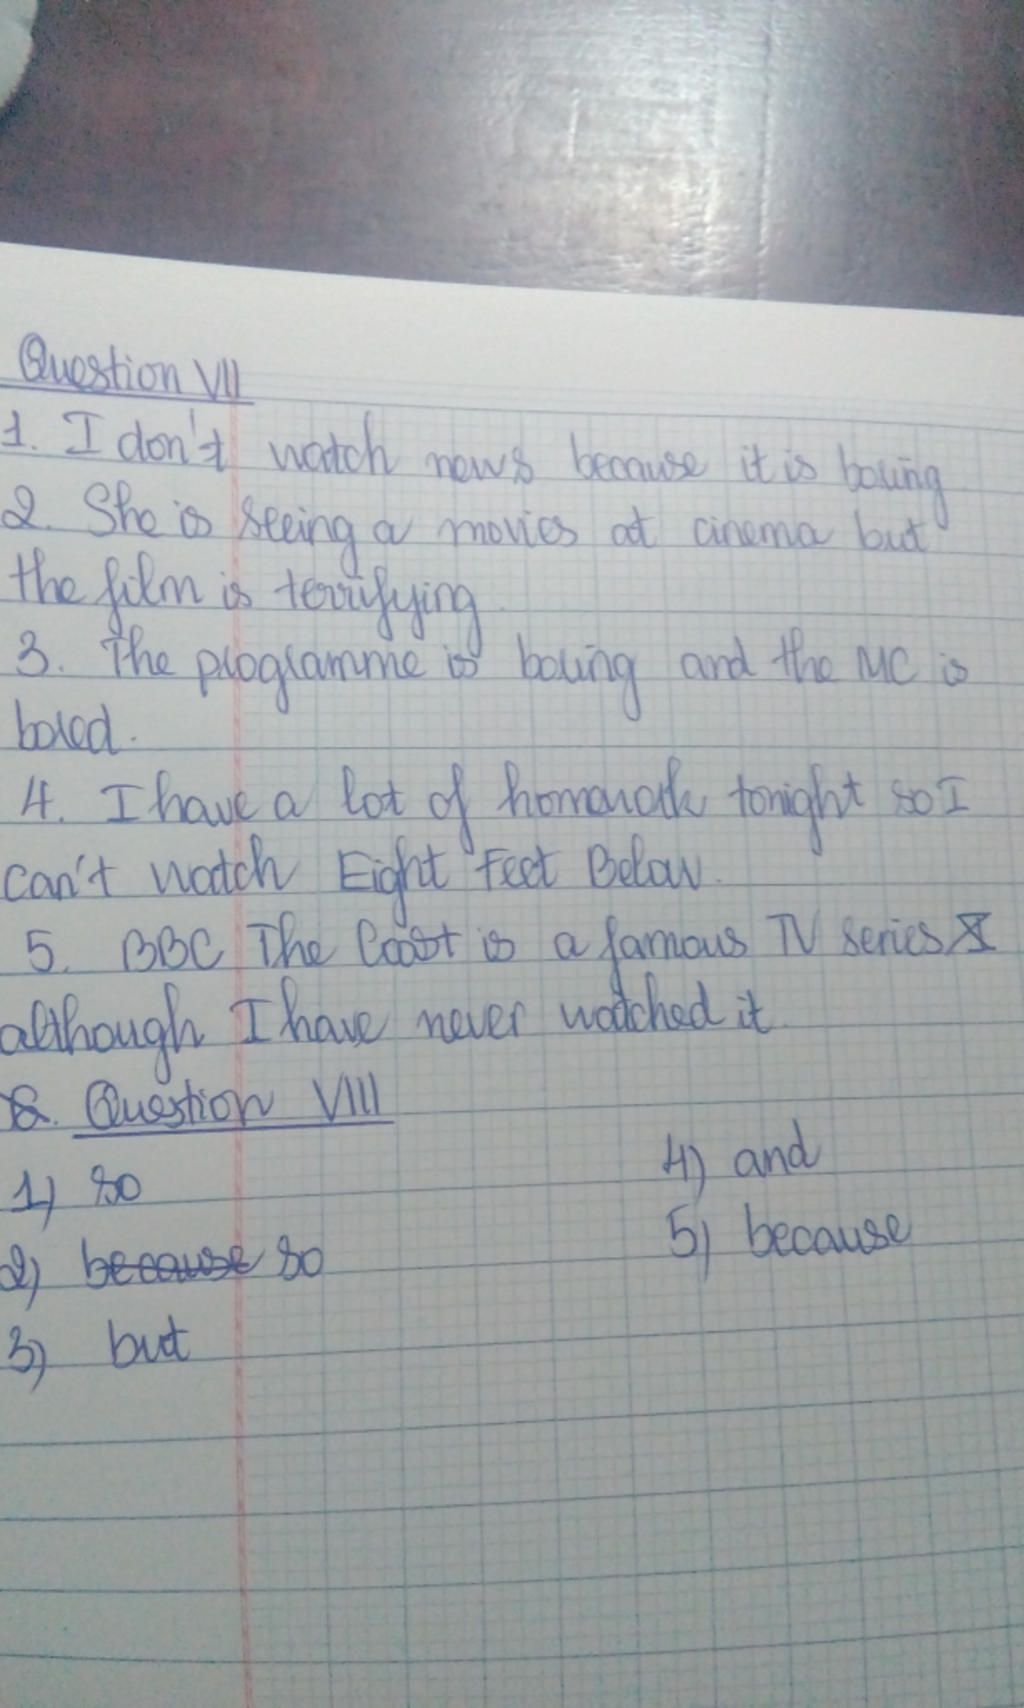 Question VII
1. I don't watch news because it is boring
2. She is seeing a movies at cinema but
the film is terrifying.
3. The programme is boring and the MC is
bored.
4. I have a lot of homework tonight so I
can't watch Eight Feet Below.
5. BBC The Coast is a famous TV series
although I have never watched it.
Question VIII
1) so
2) because so
3) but
4) and
5) because